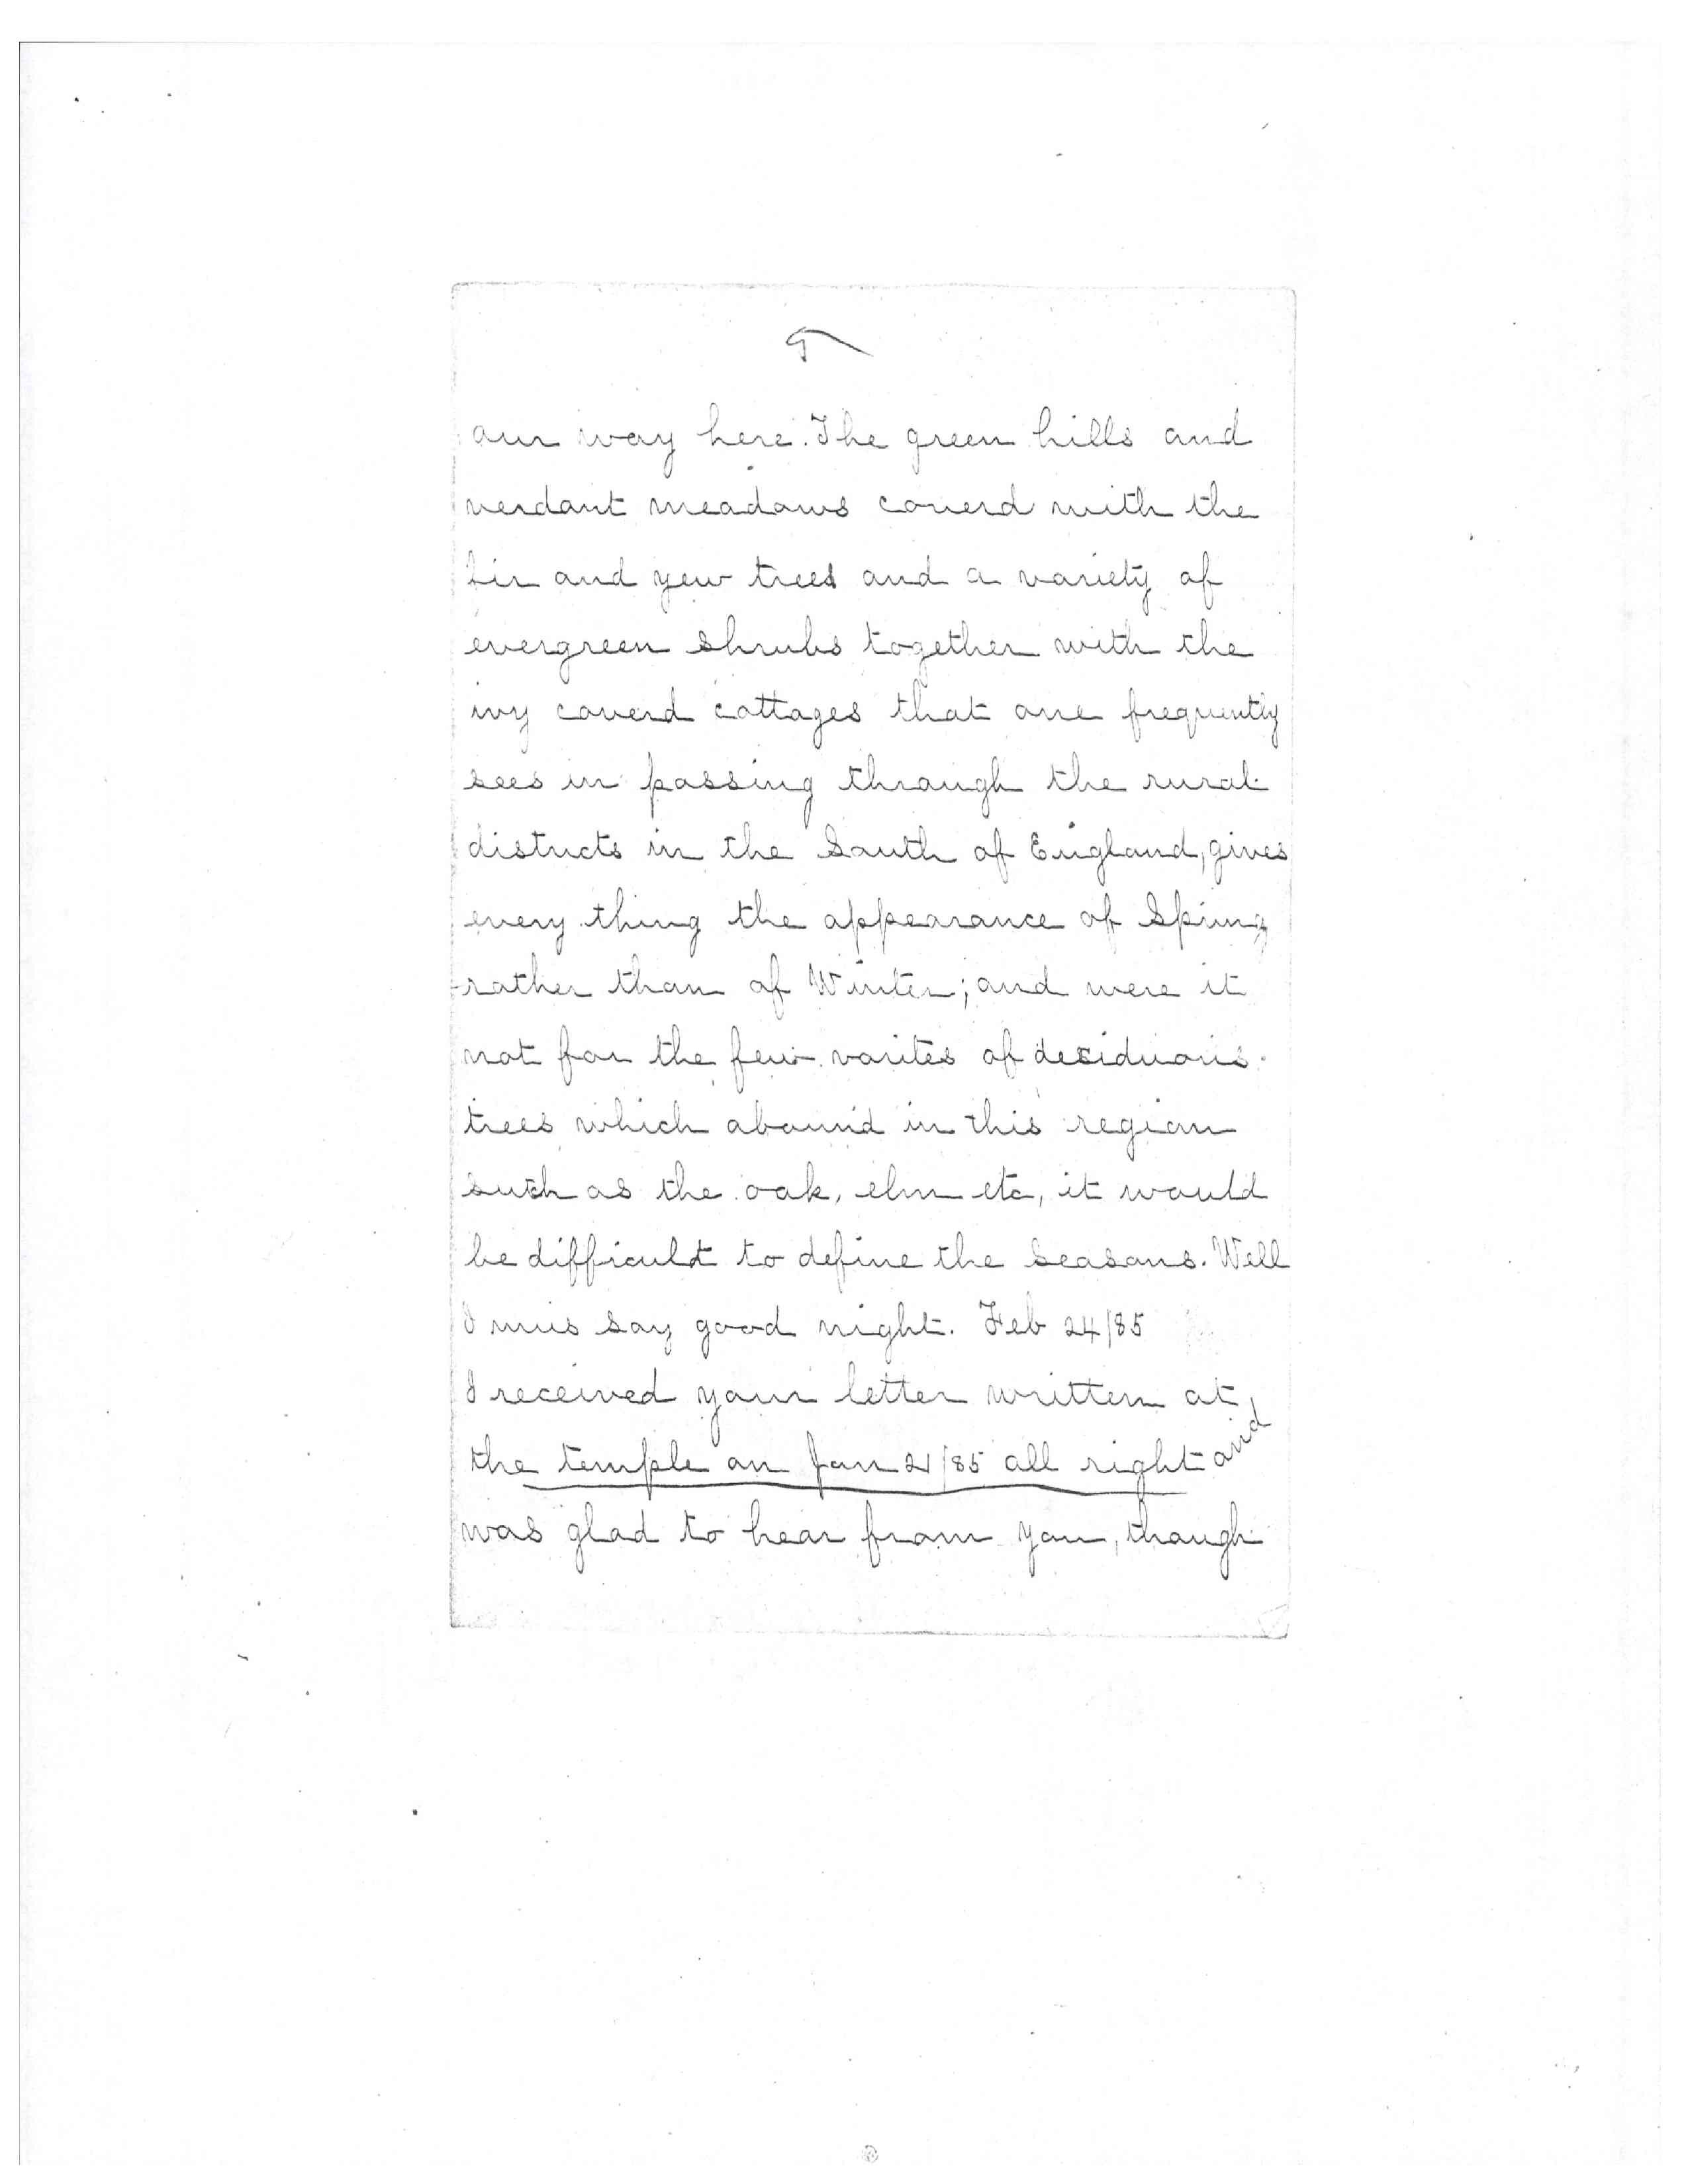 5
our way here. The green hills and
verdant meadows coverd with the
fir and yew trees and a variety of
evergreen shrubs together with the
ivy coverd cottages that one frequently
sees in passing through the rural
districts in the South of England, gives
every thing the appearance of Spring
rather than of Winter; and were it
not for the few varites of desiduous
trees which abound in this region
such as the oak, elm etc, it would
be difficult to define the seasons. Well
I mus say good night. Feb 24/85
I received your letter written at
the temple on Jan 21/85 all right and
was glad to hear from you, though